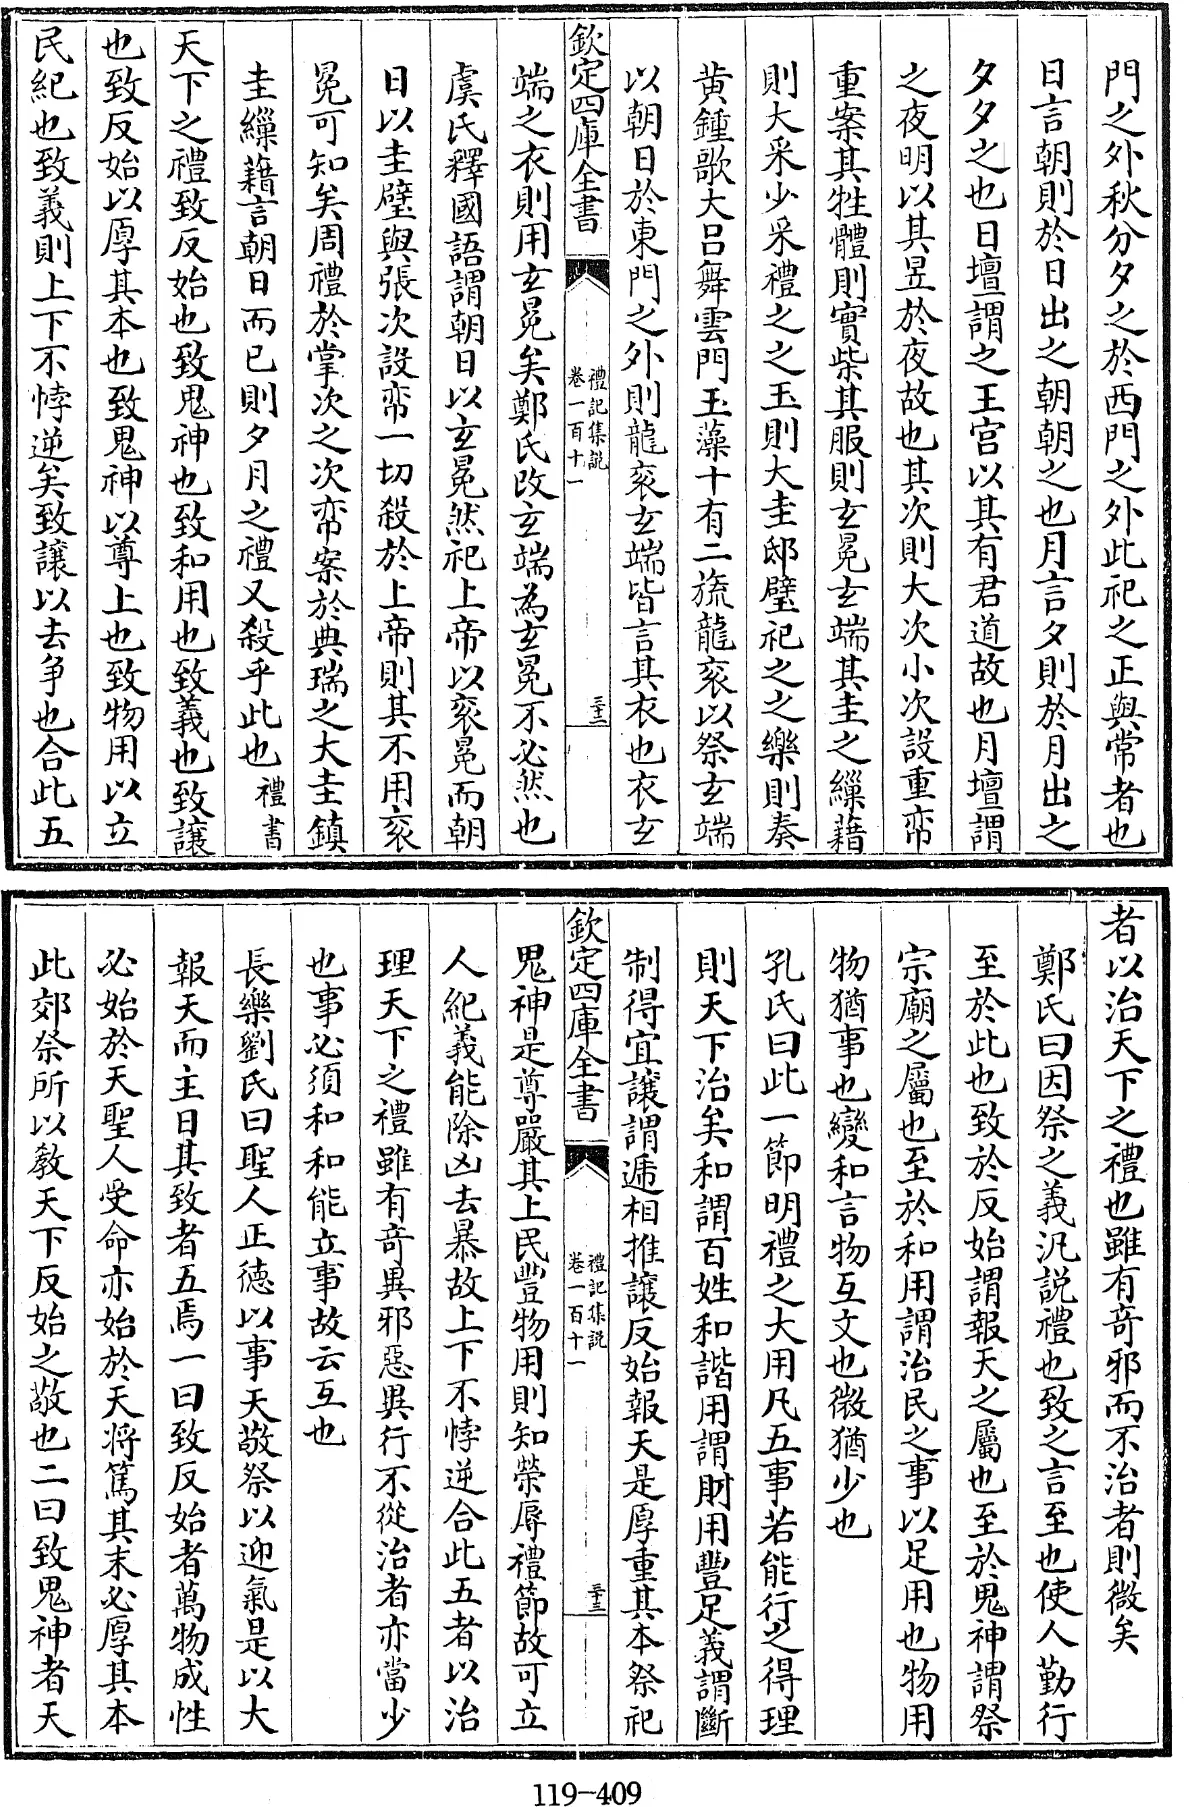 門之外秋分夕之於西門之外此祀之正與常者也
日言朝則於日出之朝朝之也月言夕則於月出之
夕夕之也日壇謂之王宮以其有君道故也月壇謂
之夜明以其昱於夜故也其次則大次小次設重帟
重案其牲體則實柴其服則玄冕玄端其圭之繅藉
則大采少采禮之之玉則大圭邸璧祀之之樂則奏
黄鍾歌大呂舞雲門玉藻十有二旒龍衮以祭玄端
以朝日於東門之外則龍衮玄端皆言其衣也衣玄
欽定四庫全書
禮記集説
卷一百十一
三十二
端之衣則用玄冕矣鄭氏改玄端為玄冕不必然也
虞氏釋國語謂朝日以玄冕然祀上帝以衮冕而朝
日以圭璧與張次設帟一切殺於上帝則其不用衮
冕可知矣周禮於掌次之次帟案於典瑞之大圭鎮
圭繅藉言朝日而已則夕月之禮又殺乎此也禮書
天下之禮致反始也致鬼神也致和用也致義也致讓
也致反始以厚其本也致鬼神以尊上也致物用以立
民紀也致義則上下不悖逆矣致讓以去争也合此五
者以治天下之禮也雖有奇邪而不治者則微矣
鄭氏曰因祭之義汎説禮也致之言至也使人勤行
至於此也致於反始謂報天之屬也至於鬼神謂祭
宗廟之屬也至於和用謂治民之事以足用也物用
物猶事也變和言物互文也微猶少也
孔氏曰此一節明禮之大用凡五事若能行之得理
則天下治矣和謂百姓和諧用謂財用豐足義謂斷
制得宜讓謂遞相推讓反始報天是厚重其本祭祀
欽定四庫全書
禮記集説
卷一百十一
三十三
鬼神是尊嚴其上民豐物用則知榮辱禮節故可立
人紀義能除凶去暴故上下不悖逆合此五者以治
理天下之禮雖有奇異邪惡異行不從治者亦當少
也事必須和和能立事故云互也
長樂劉氏曰聖人正德以事天敬祭以迎氣是以大
報天而主日其致者五焉一曰致反始者萬物成性
必始於天聖人受命亦始於天將篤其末必厚其本
此郊祭所以教天下反始之敬也二曰致鬼神者天
119-409